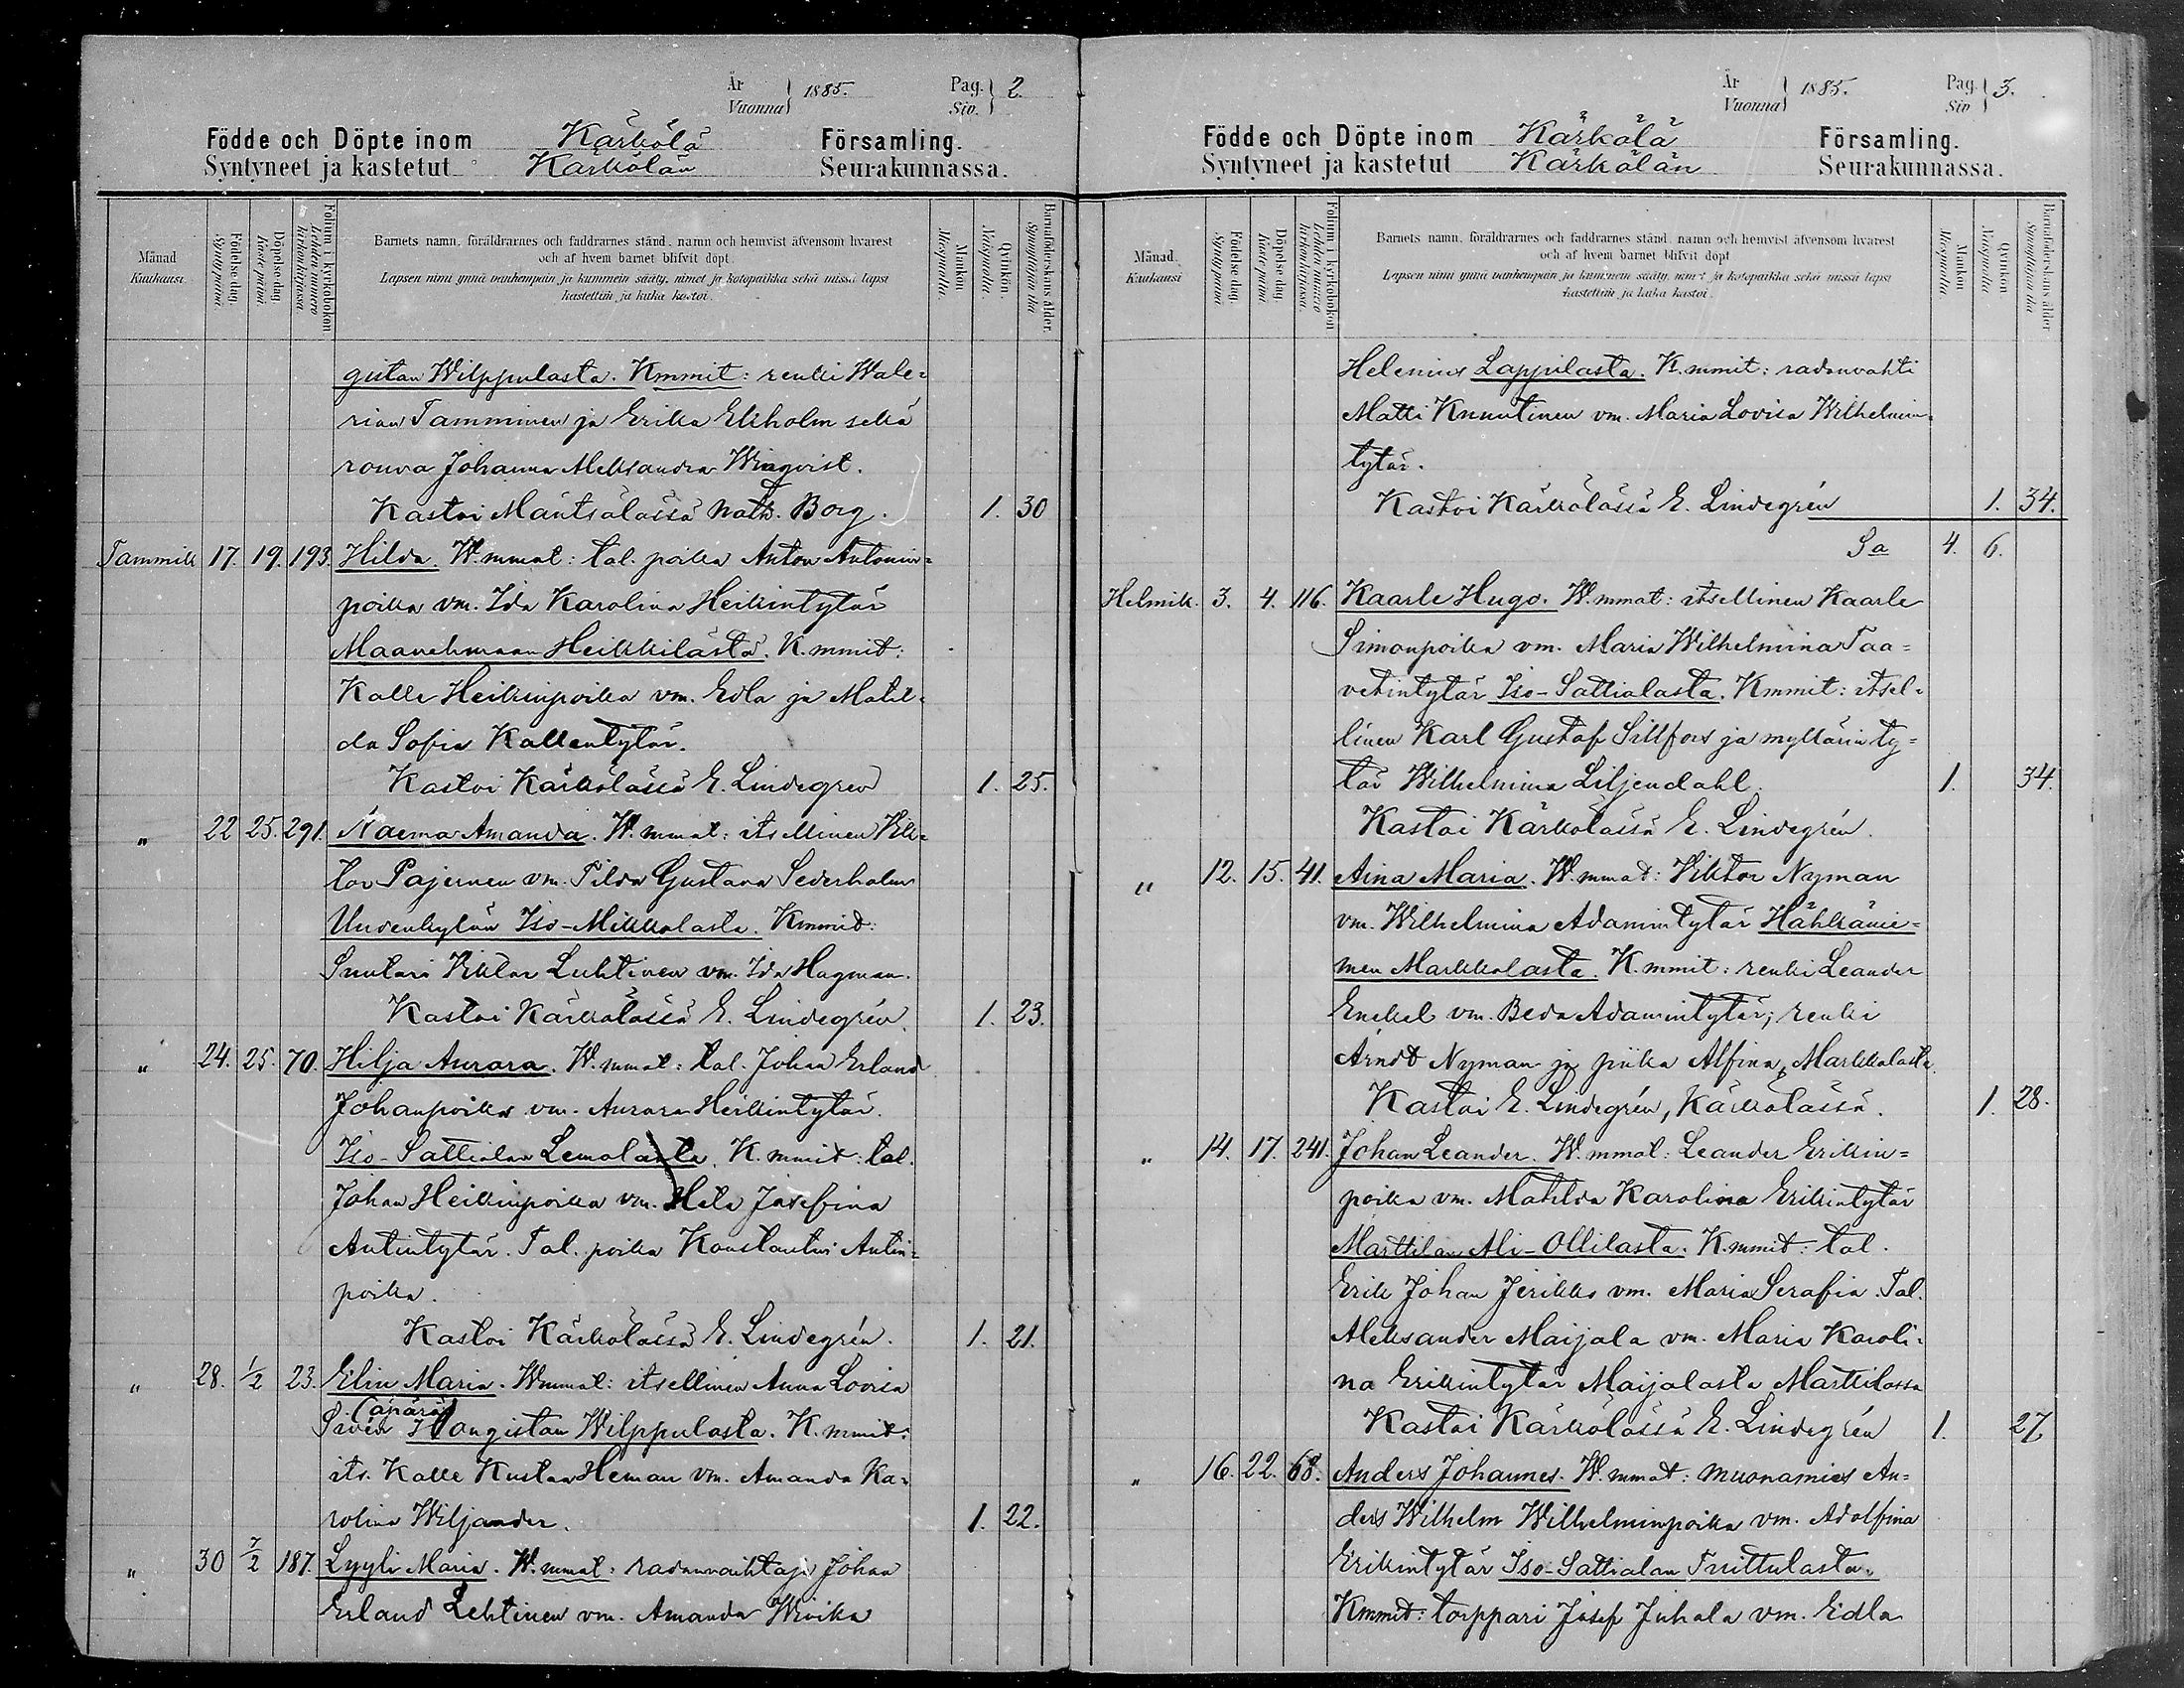 År
Vuonna } 1885.
Pag.
Siv. } 2.
Födde och Döpte inom Kärkölä Församling.
Syntyneet ja kastetut Kärkölän Seurakunnassa.
Månad
Kuukausi.
Födelsedag.
Syntypäivä.
Döpelsedag.
Kastepäivä.
Folium i kyrkoboken.
Lehden numero
kirkonkirjassa.
Barnets namn, föräldrarnes och faddrarnes stånd, namn och hemvist äfvensom hvarest
och af hvem barnet blifvit döpt.
Lapsen nimi ynnä vanhempain ja kummein sääty, nimet ja kotopaikka sekä missä lapsi
kastettiin ja kuka kastoi.
Mankön.
Miespuolia.
Qvinkön.
Naispuolia.
Barnaföderskans ålder.
Synnyttäjän ikä
gistan Wilppulasta. Kmmit: renki Wale=
rian Tamminen ja Erika Ekholm sekä
rouva Johanna Aleksandra Winqvist.
Kastoi Mäntsälässä Nath. Borg. 1. 30
Tammik 17. 19. 193. Hilda. W.mmat: tal. poika Anton Antonin=
poika vm. Ida Karolina Heikintytär
Maavehmaan Heikkilästä. K.mmit:
Kalle Heikinpoika vm. Edla ja Matil=
da Sofia Kallentytär.
Kastoi Kärkölässä E. Lindegren 1. 25.
" 22 25. 291. Naema Amanda. W.mmat: itsellinen Wik=
tor Pajunen vm. Tilda Gustava Sederholm
Uudenkylän Iso-Mikkolasta. Kmmit:
Suutari Viktor Luhtinen vm. Ida Hagman.
Kastoi Kärkölässä E. Lindegrén. 1. 23.
" 24. 25. 70. Hilja Aurora. W.mmat: tal. Johan Erland
Johanpoika vm. Aurora Heikintytär.
Iso-Sattialan Lemolasta. K.mmit: tal.
Johan Heikinpoika vm. Hela Josefina
Antintytär. Tal. poika Konstantin Antin=
poika.
Kastoi Kärkölässä E. Lindegrén. 1. 21.
" 28. 1/2 23. Elin Maria. Wmmat: itsellinen Anna Lovisa
(äpärä)
Sivén Hongistan Wilppulasta. K.mmit:
its. Kalle Kustaa Heman vm. Amanda Ka=
rolina Wiljander. 1. 22.
" 30 7/2 187. Lyyli Maria. W.mmat: radanvaihtaja Johan
Erland Lehtinen vm. Amanda Wivika
År
Vuonna } 1885.
Pag.
Siv. } 3.
Födde och Döpte inom Kärkölä Församling.
Syntyneet ja kastetut Kärkölän Seurakunnassa.
Månad.
Kuukausi
Födelsedag.
Syntypäivä
Döpelsedag.
Kastepäivä.
Folium i kyrkoboken
Lehden numero
kirkonkirjassa.
Barnets namn, föräldrarnes och faddrarnes stånd, namn och hemvist äfvensom hvarest
och af hvem barnet blifvit döpt
Lapsen nimi ynnä vanhempain ja kummein sääty, nimet ja kotopaikka sekä missä lapsi
kastettiin ja kuka kastoi.
Mankön
Miespuolia
Qvinkön
Naispuolia
Barnaföderskans ålder
Synnyttäjän ikä
Helenius Lappilasta. K.mmit: radanvahti
Matti Knuutinen vm. Maria Lovisa Wilhelmin=
tytär.
Kastoi Kärkölässä E. Lindegrén 1. 34.
Sa 4. 6.
Helmik. 3. 4. 116. Kaarle Hugo. W.mmat: itsellinen Kaarle
Simonpoika vm. Maria Wilhelmina Taa=
vetintytär Iso-Sattialasta. Kmmit: itsel=
linen Karl Gustaf Sillfors ja myllärin ty=
tär Wilhelmina Liljendahl. 1. 34.
Kastoi Kärkölässä E. Lindegrén.
" 12. 15. 41. Aina Maria. W.mmat: Viktor Nyman
vm. Wilhelmina Adamintytär Hähkänie=
men Markkolasta. K.mmit: renki Leander
Enckel vm. Beda Adamintytär; renki
Arndt Nyman ja piika Alfina, Markkolasta.
Kastoi E. Lindegrén, Kärkölässä. 1. 28.
" 14. 17. 241. Johan Leander. W.mmat: Leander Erikin=
poika vm. Matilda Karolina Erikintytär
Marttilan Ali-Ollilasta. K.mmit: tal.
Erik Johan Jerikko vm. Maria Serafia. Tal.
Aleksander Maijala vm. Maria Karoli=
na Erikintytär Maijalasta Marttilassa
Kastoi Kärkölässä E. Lindegrén 1. 27.
" 16. 22. 68. Anders Johannes. W.mmat: muonamies An=
ders Wilhelm Wilhelminpoika vm. Adolfina
Erikintytär Iso-Sattialan Tuittulasta.
Kmmit: torppari Josef Juhala vm. Edla